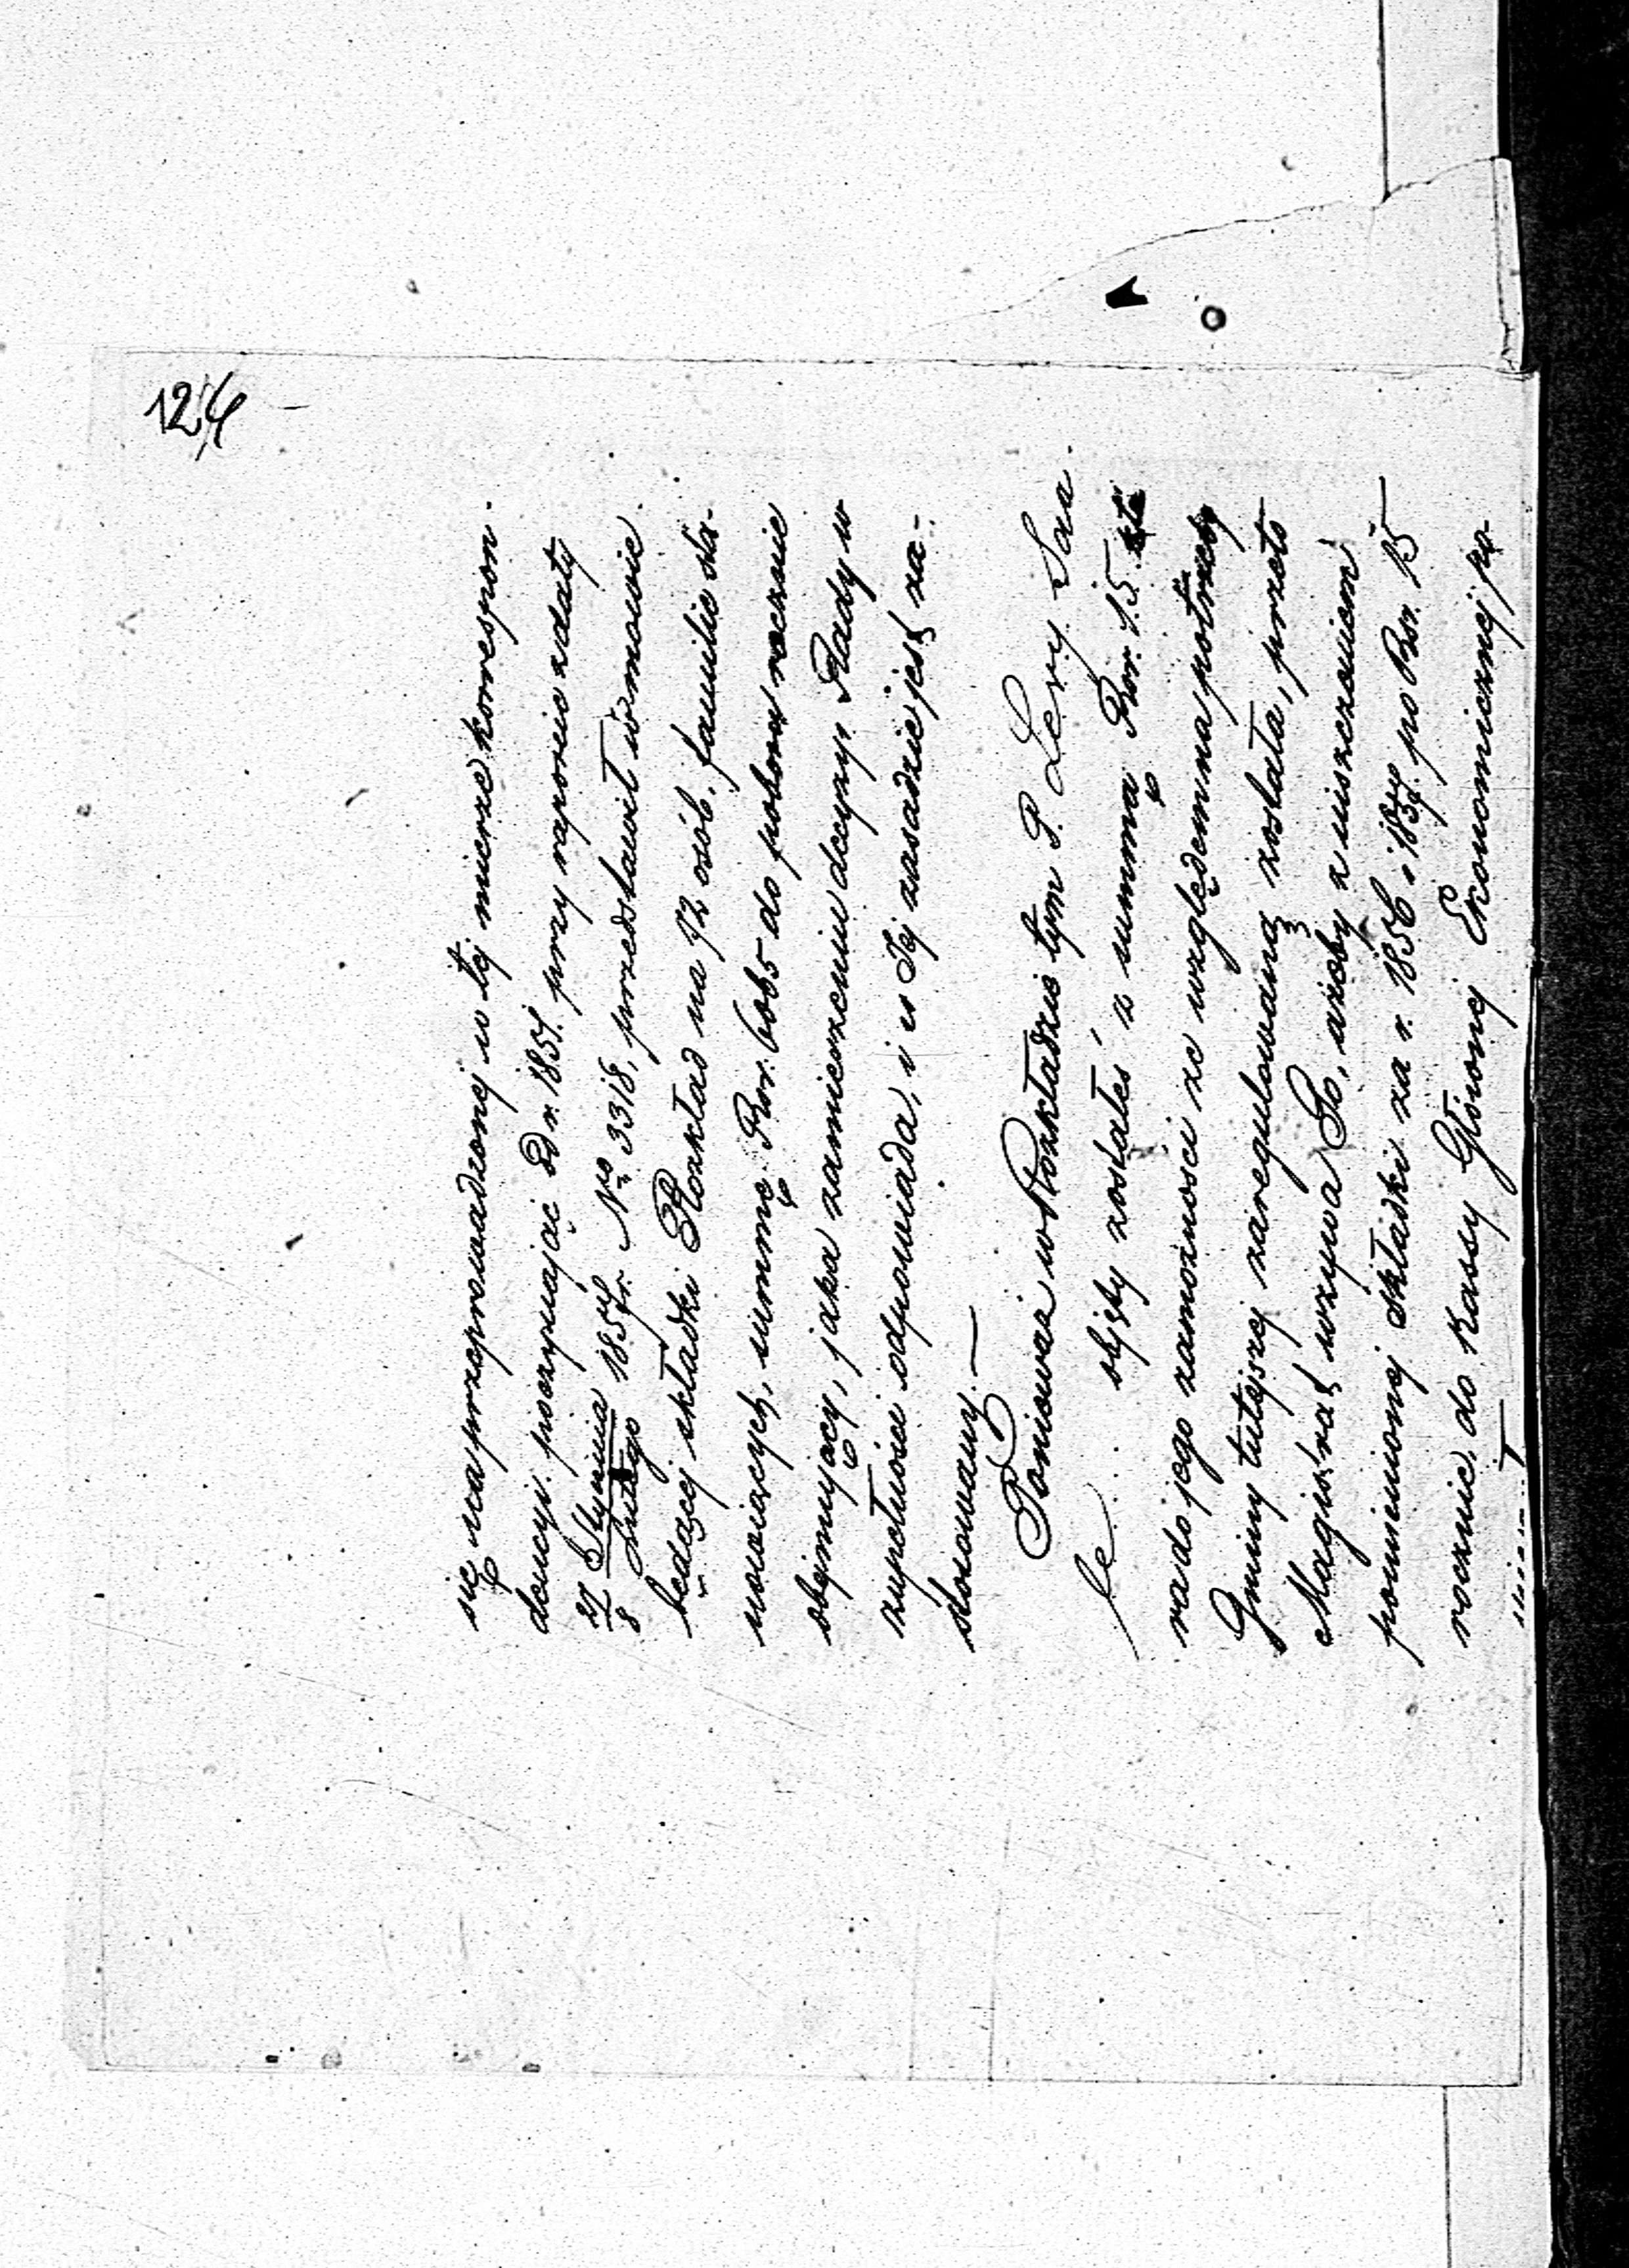 124
się na przeprowadzonej w tej mierze korrespon-
dencyi. począwszając od r. 1851. przy raporcie z daty
27 Stycznia / 8 Lutego 1857 r. No 3318, przedstawił w mowie
będącej składki Rozkład na 92 osób, familie sta-
nowiących, summę Rsr. 6065 do poboru rocznie
obejmujący, jaka zamierzeniu decyzyi Rady w
zupełności odpowiada, i is Tej zasadzie jest za-
stosowany.—
Ponieważ w Rozkładzie tym P. Levy Sau
le objęty zostałeś z summą Rsr. 15. któ
ra do jego zamożności ze względem na potrzeby
Gminy tutejszej zaregulowaną została, przeto
Magistrat wzywa Go, ażeby z uiszczeniem
pomienionej składki za r. 1856 i 1857. po Rsr. 15
rocznie, do Kassy Głównej Ekonomicznej po-